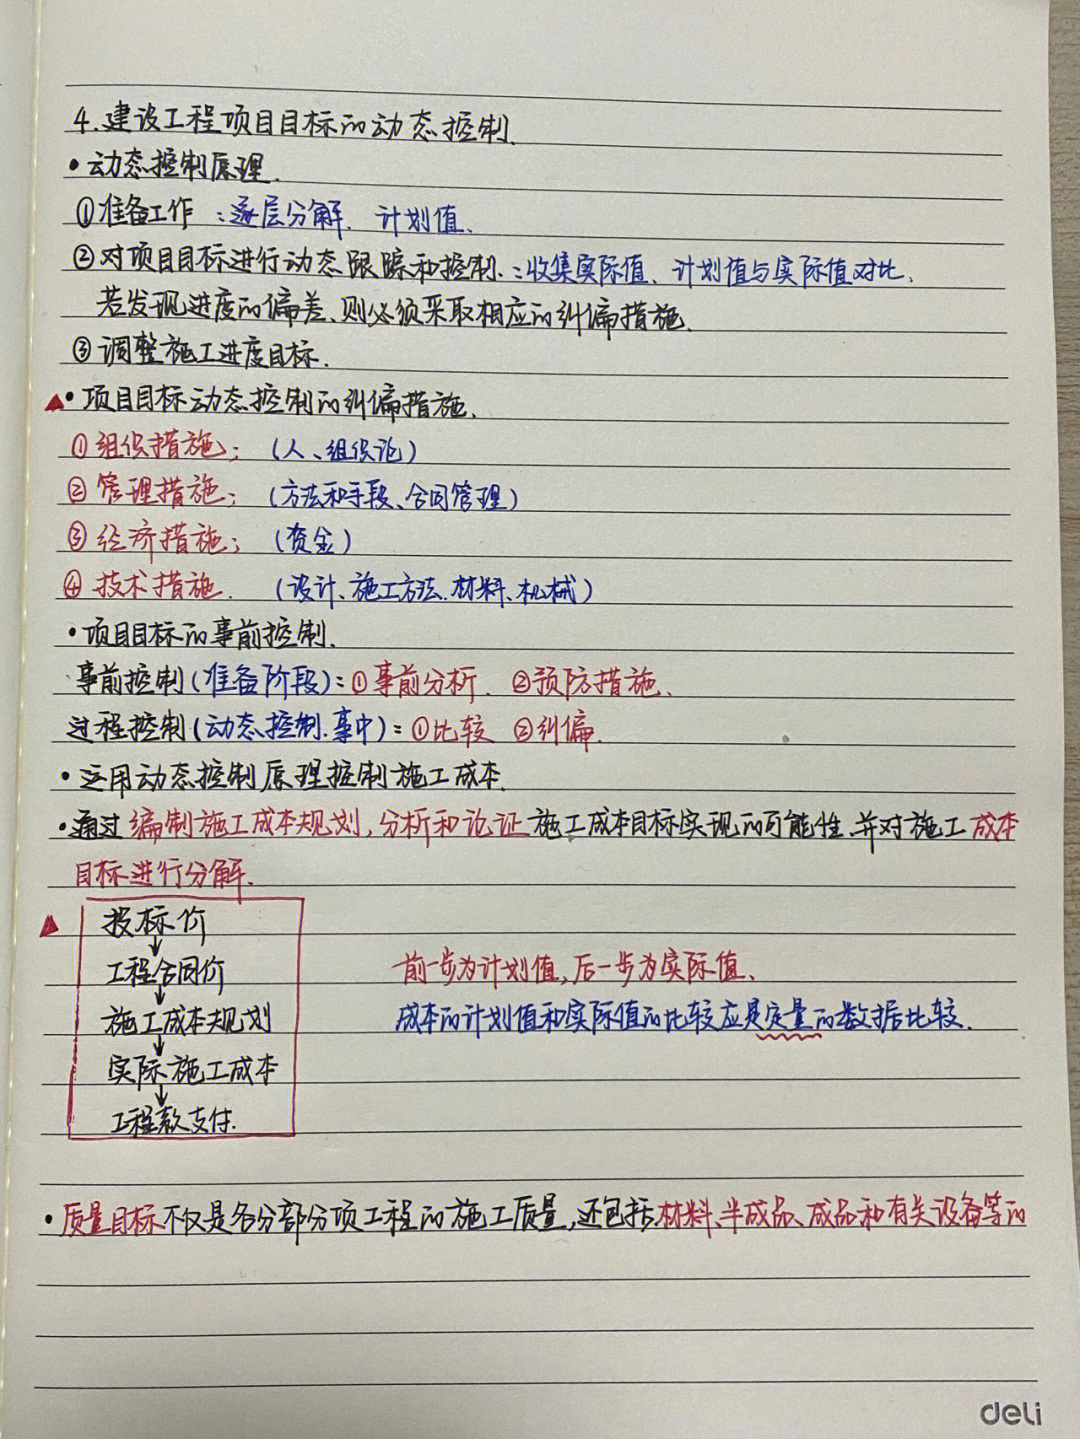 4.建设工程项目目标的动态控制.
•动态控制原理.
①准备工作：逐层分解. 计划值、
②对项目目标进行动态跟踪和控制.：收集实际值、计划值与实际值对比.
若发现进度的偏差、则必须采取相应的纠偏措施.
③调整施工进度目标.
▲•项目目标动态控制的纠偏措施.
①组织措施；（人、组织论）
②管理措施；（方法和手段、合同管理）
③经济措施；（资金）
④技术措施.（设计、施工方法.材料、机械）
•项目目标的事前控制.
事前控制(准备阶段)：①事前分析. ②预防措施、
过程控制(动态控制.事中)：①比较 ②纠偏.
•运用动态控制原理控制施工成本.
•通过编制施工成本规划,分析和论证施工成本目标实现的可能性.并对施工成本
目标进行分解.
▲投标价
↓
工程合同价
↓
施工成本规划
↓
实际施工成本
↓
工程款支付.
前一步为计划值,后一步为实际值、
成本的计划值和实际值的比较应是定量的数据比较.
•质量目标不仅是各分部分项工程的施工质量,还包括材料、半成品、成品和有关设备等的
deli